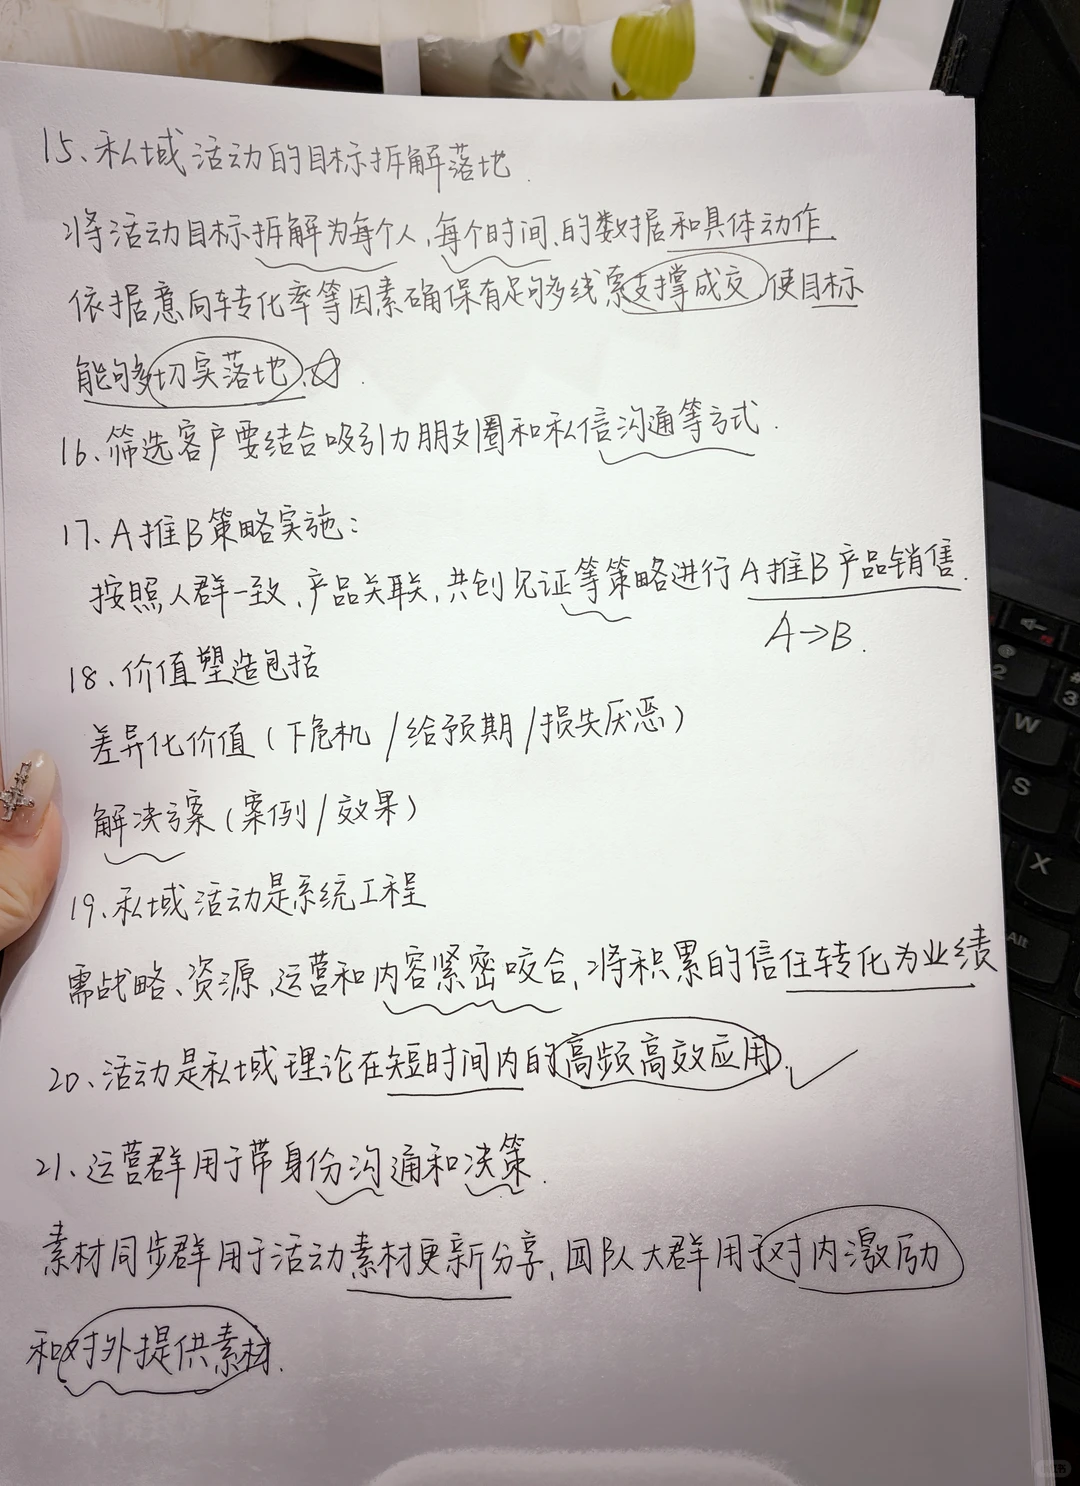 15、私域活动的目标拆解落地.
将活动目标拆解为每个人,每个时间、的数据和具体动作.
依据意向转化率等因素确保有足够多线索支撑成交,使目标
能够多切实落地.☆.
16、筛选客户要结合吸引力朋友圈和私信沟通等方式.
17、A推B策略实施:
按照人群一致、产品关联,共创见证等策略进行A推B产品销售.
A→B.
18、价值塑造包括
差异化价值(下危机/给预期/损失厌恶)
解决方案(案例/效果)
19、私域活动是系统工程
需战略、资源、运营和内容紧密咬合,将积累的信任转化为业绩
20、活动是私域理论在短时间内的高频高效应用.✓
21、运营群用于带身份沟通和决策.
素材同步群用于活动素材更新分享,团队大群用于对内激励
和对外提供素材.
@
2
#
3
W
S
X
Alt